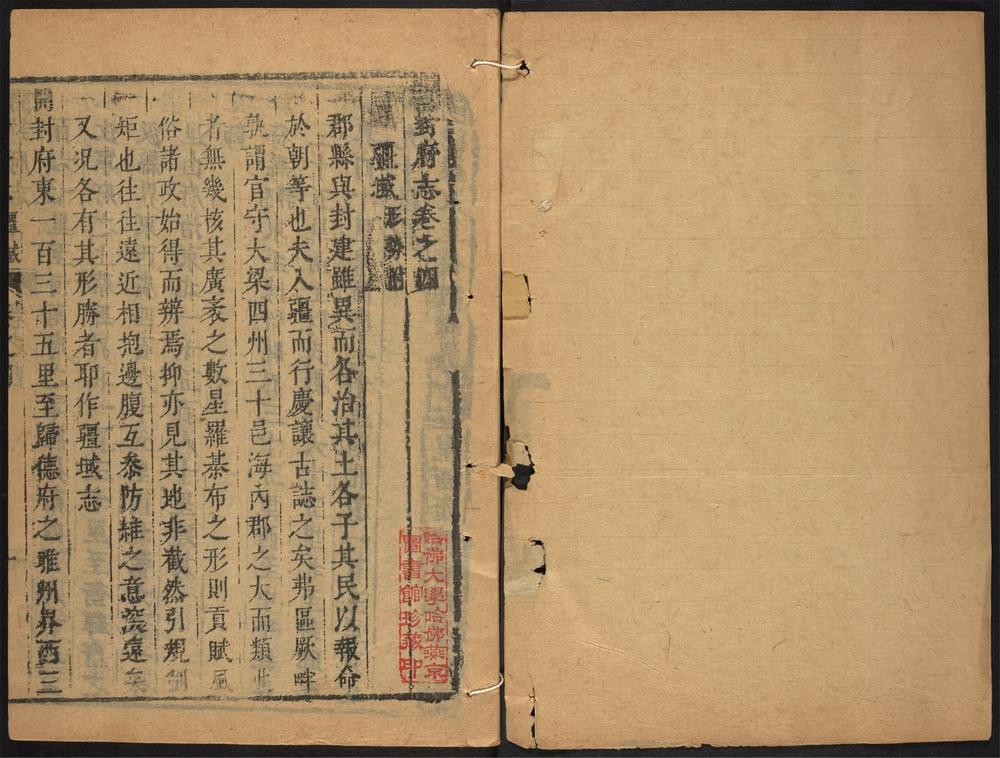 封府志卷之四
疆域形勢附
郡縣與封建雖異而各治其土各子其民以報命
於朝等也夫入疆而行慶讓古誌之矣弗區厥畔
孰謂官守大梁四州三十邑海內郡之大而類此
者無幾核其廣袤之數星羅棊布之形則貢賦風
俗諸政始得而辨焉抑亦見其地非截然引規
矩也往往遠近相抱邊腹互叅防維之意深遠矣
又況各有其形勝者耶作疆域志
開封府東一百三十五里至歸德府之睢州界西三
疆域
哈佛大學哈佛燕京
圖書館珍藏印